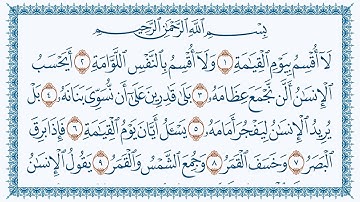 بِسْمِ ٱللَّهِ ٱلرَّحْمَٰنِ ٱلرَّحِيمِ
لَآ أُقْسِمُ بِيَوْمِ ٱلْقِيَٰمَةِ ١ وَلَآ أُقْسِمُ بِٱلنَّفْسِ ٱللَّوَّامَةِ ٢ أَيَحْسَبُ
ٱلْإِنسَٰنُ أَلَّن نَّجْمَعَ عِظَامَهُۥ ٣ بَلَىٰ قَٰدِرِينَ عَلَىٰٓ أَن نُّسَوِّيَ بَنَانَهُۥ ٤ بَلْ
يُرِيدُ ٱلْإِنسَٰنُ لِيَفْجُرَ أَمَامَهُۥ ٥ يَسْـَٔلُ أَيَّانَ يَوْمُ ٱلْقِيَٰمَةِ ٦ فَإِذَا بَرِقَ
ٱلْبَصَرُ ٧ وَخَسَفَ ٱلْقَمَرُ ٨ وَجُمِعَ ٱلشَّمْسُ وَٱلْقَمَرُ ٩ يَقُولُ ٱلْإِنسَٰنُ